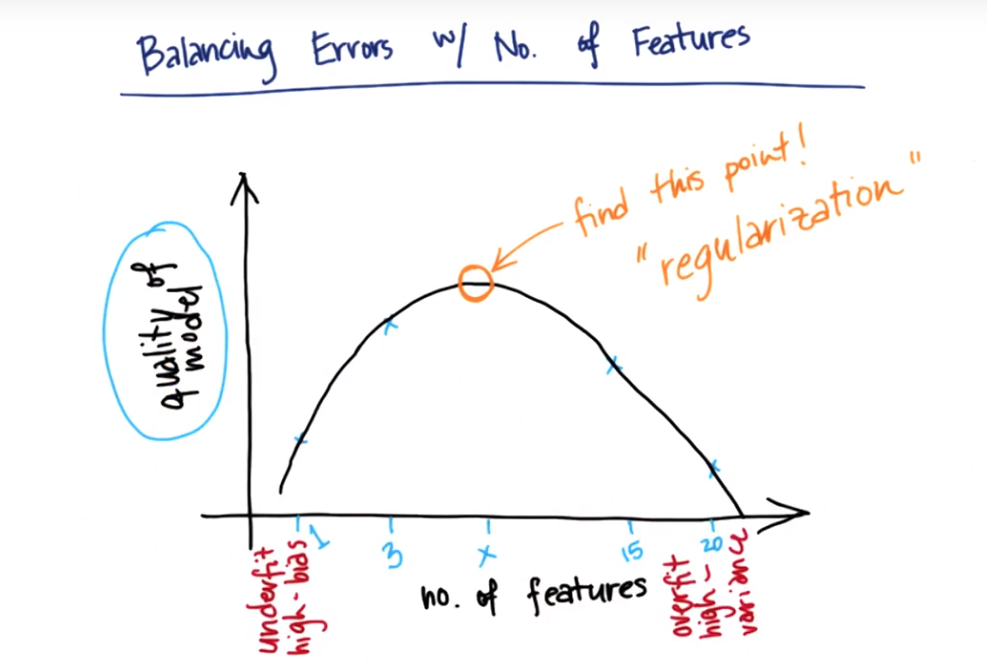 Balancing Errors w/ No. of Features
find this point!
"regularization"
quality of
model
1
3
x
15
20
underfit
high-bias
no. of features
overfit
high-
variance